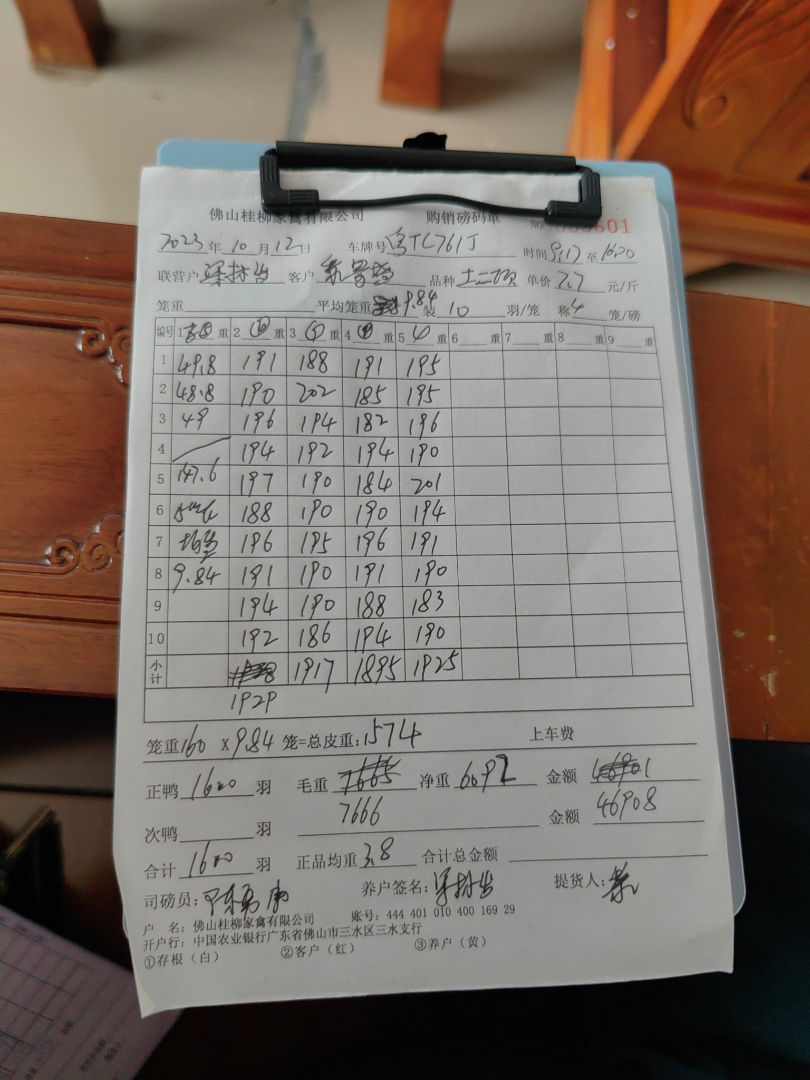 佛山桂柳家禽有限公司 购销磅码单 NO 601
2023年10月12日 车牌号粤TC761J 时间9:17至16:20
联营户 客户 品种土二 单价7.7元/斤
笼重 平均笼重9.84装10羽/笼 称4笼/磅
编号 1 重 2④重 3④重 4④重 5④重 6 重 7 重 8 重 9 重
1 49.8 191 188 191 195
2 48.8 190 202 185 195
3 49 196 194 182 196
4 194 192 194 190
5 147.6 197 190 184 201
6 188 190 190 194
7 196 195 196 191
8 9.84 191 190 191 190
9 194 190 188 183
10 192 186 194 190
小计 1917 1895 1925
1929
笼重160×9.84笼=总皮重:1574 上车费
正鸭1600羽 毛重7665 净重6092 金额
次鸭 羽 7666 金额46908
合计1600羽 正品均重3.8 合计总金额
司磅员: 养户签名: 提货人:
户 名: 佛山桂柳家禽有限公司 账号: 444 401 010 400 169 29
开户行: 中国农业银行广东省佛山市三水区三水支行
①存根(白) ②客户(红) ③养户(黄)